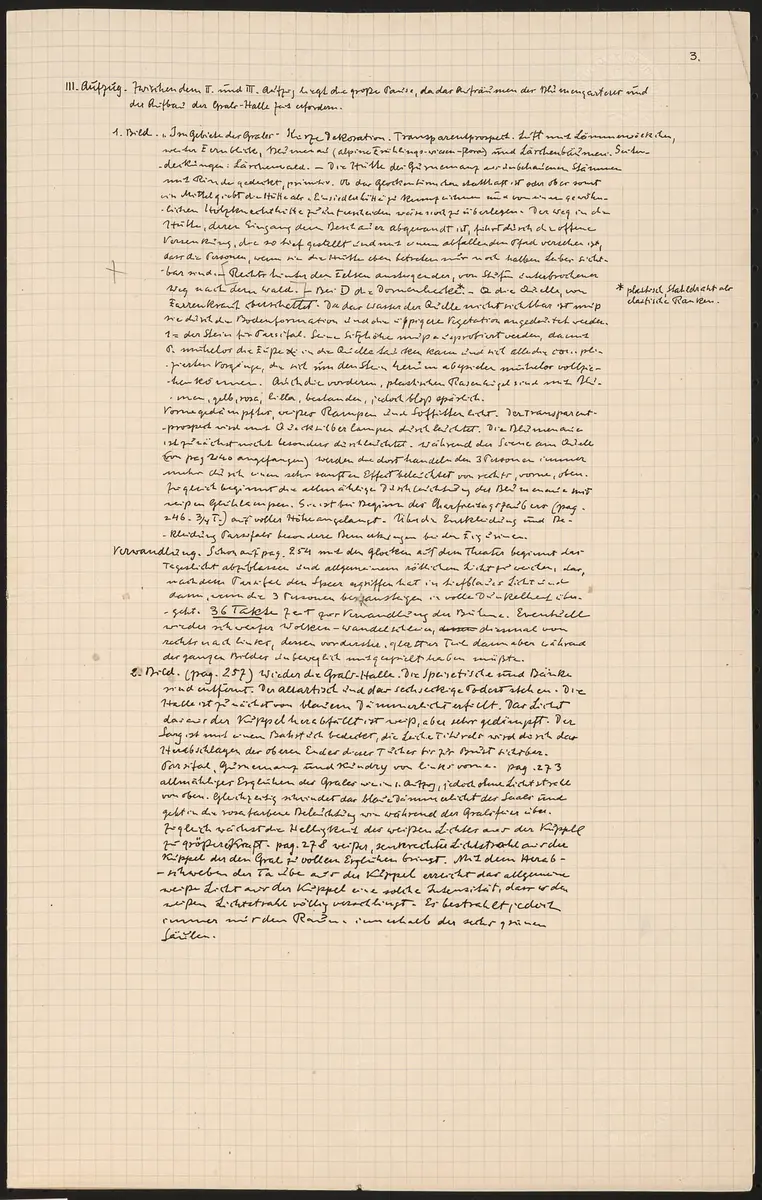 3.
III. Aufzug. Zwischen dem II. und III. Aufzug liegt die große Pause, da das Aufräumen des Blumengartens und
der Aufbau der Grals-Halle Zeit erfordern.
1. Bild. „Im Gebiete des Grales" - Kurze Dekoration. Transparentprospect. Luft mit Lämmerwölkchen,
weiter Fernblick, Blumenau (alpine Frühlingswiesen-flora) und Lärchenbäumen. Seiten-
deckungen: Lärchenwald. — Die Hütte des Gurnemanz aus unbehauenen Stämmen
mit Rinde gedeckt, primitiv. Ob das Glockentürmchen statthaft ist oder ob er sonst
ein Mittel giebt die Hütte als Einsiedlerhütte zu kennzeichnen und von einer gewöhn-
lichen Holzknechtshütte zu unterscheiden wäre noch zu überlegen. Der Weg in die
Hütte, deren Eingang dem Beschauer abgewandt ist, führt durch die offene
Versenkung, die so tief gestellt und mit einem abfallenden Pfad versehen ist,
dass die Personen, wenn sie die Hütte eben betreten nur noch halben Leibes sicht-
bar sind. — Rechts hinter den Felsen ansteigender, von Stufen unterbrochener
Weg nach dem Wald. — Bei D die Dornenhecke*. — Q die Quelle, von
* plastisch Stahldraht als
elastische Ranken.
Farrenkraut überschattet. Da das Wasser der Quelle nicht sichtbar ist muß
sie durch die Bodenformation und die üppigere Vegetation angedeutet werden.
1 = der Stein für Parsifal. Seine Sitzhöhe muß ausprobiert werden, damit
P. mühelos die Füße in die Quelle tauchen kann und sich alle die compli-
zierten Vorgänge, die sich um den Stein herum abspielen mühelos vollzie-
hen können. Auch die vorderen, plastischen Rasenhügel sind mit Blu-
men, gelb, rosa, lilla, bestanden, jedoch bloß spärlich.
Vorne gedämpftes, weißes Rampen und Soffittenlicht. Der Transparent-
prospect wird mit Quecksilberlampen durchleuchtet. Die Blumenaue
ist zunächst nicht besonders durchleuchtet. Während der Scene am Quell
(von pag 240 angefangen) werden die dort handelnden 3 Personen immer
mehr durch einen sehr sanften Effect beleuchtet von rechts, vorne, oben.
Zugleich beginnt die allmählige Durchleuchtung der Blumenaue mit
weißen Glühlampen. Sie ist bei Beginn des Charfreitagszaubers (pag.
246. 3/4 T.) auf voller Höhe angelangt. Über die Entkleidung und Be-
kleidung Parsifals besondere Bemerkungen bei den Figurinen.
Verwandlung. Schon auf pag. 254 mit den Glocken auf dem Theater beginnt das
Tageslicht abzublassen und allgemeinem rötlichem Licht zu weichen, das,
nachdem Parsifal den Speer ergriffen hat in tiefblaues Licht und
dann, wenn die 3 Personen ansteigen in volle Dunkelheit über-
geht. 36 Takte Zeit zur Verwandlung der Bühne. Eventuell
wieder schwarzer Wolken-Wandelschleier, diesmal von
rechts nach links, dessen vorderster, glatter Teil dann aber während
des ganzen Bildes unbeweglich mitgespielt haben müßte.
2. Bild. (pag. 257) Wieder die Grals-Halle. Die Speisetische und Bänke
sind entfernt. Der Altartisch und das sechseckige Podest stehen. Die
Halle ist zunächst von blauem Dämmerlicht erfüllt. Das Licht
das aus der Kuppel herabfällt ist weiß, aber sehr gedämpft. Der
Sarg ist mit einem Bahrtuch bedeckt, die Leiche Titurels wird durch das
Herabschlagen der oberen Enden dieser Tücher bis zur Brust sichtbar.
Parsifal, Gurnemanz und Kundry von links vorne. pag. 273
allmähliges Erglühen des Grales wie im 1. Aufzug, jedoch ohne Lichtstrahl
von oben. Gleichzeitig schwindet das blaue Dämmerlicht des Saales und
geht in die rosafarbene Beleuchtung wie während der Gralsfeier über.
Zugleich wächst die Helligkeit des weißen Lichtes aus der Kuppel
zu größerer Kraft. pag. 278 weißer, senkrechter Lichtstrahl aus der
Kuppel der den Gral zu vollem Erglühen bringt. Mit dem Herab-
schweben der Taube aus der Kuppel erreicht das allgemeine
weiße Licht aus der Kuppel eine solche Intensität, dass es den
weißen Lichtstrahl völlig verschlingt. Es bestrahlt jedoch
immer nur den Raum innerhalb der sechs grünen
Säulen.